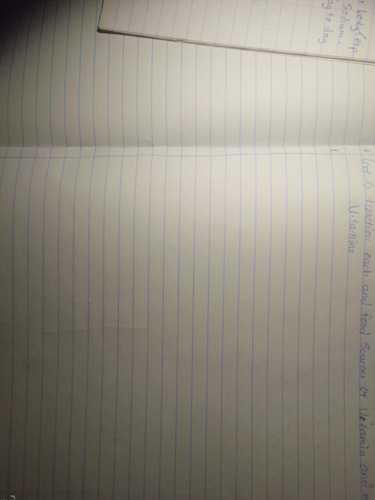 body
Sodium.
to day
6 function each and food Sources of Vitamin and
Vitamins